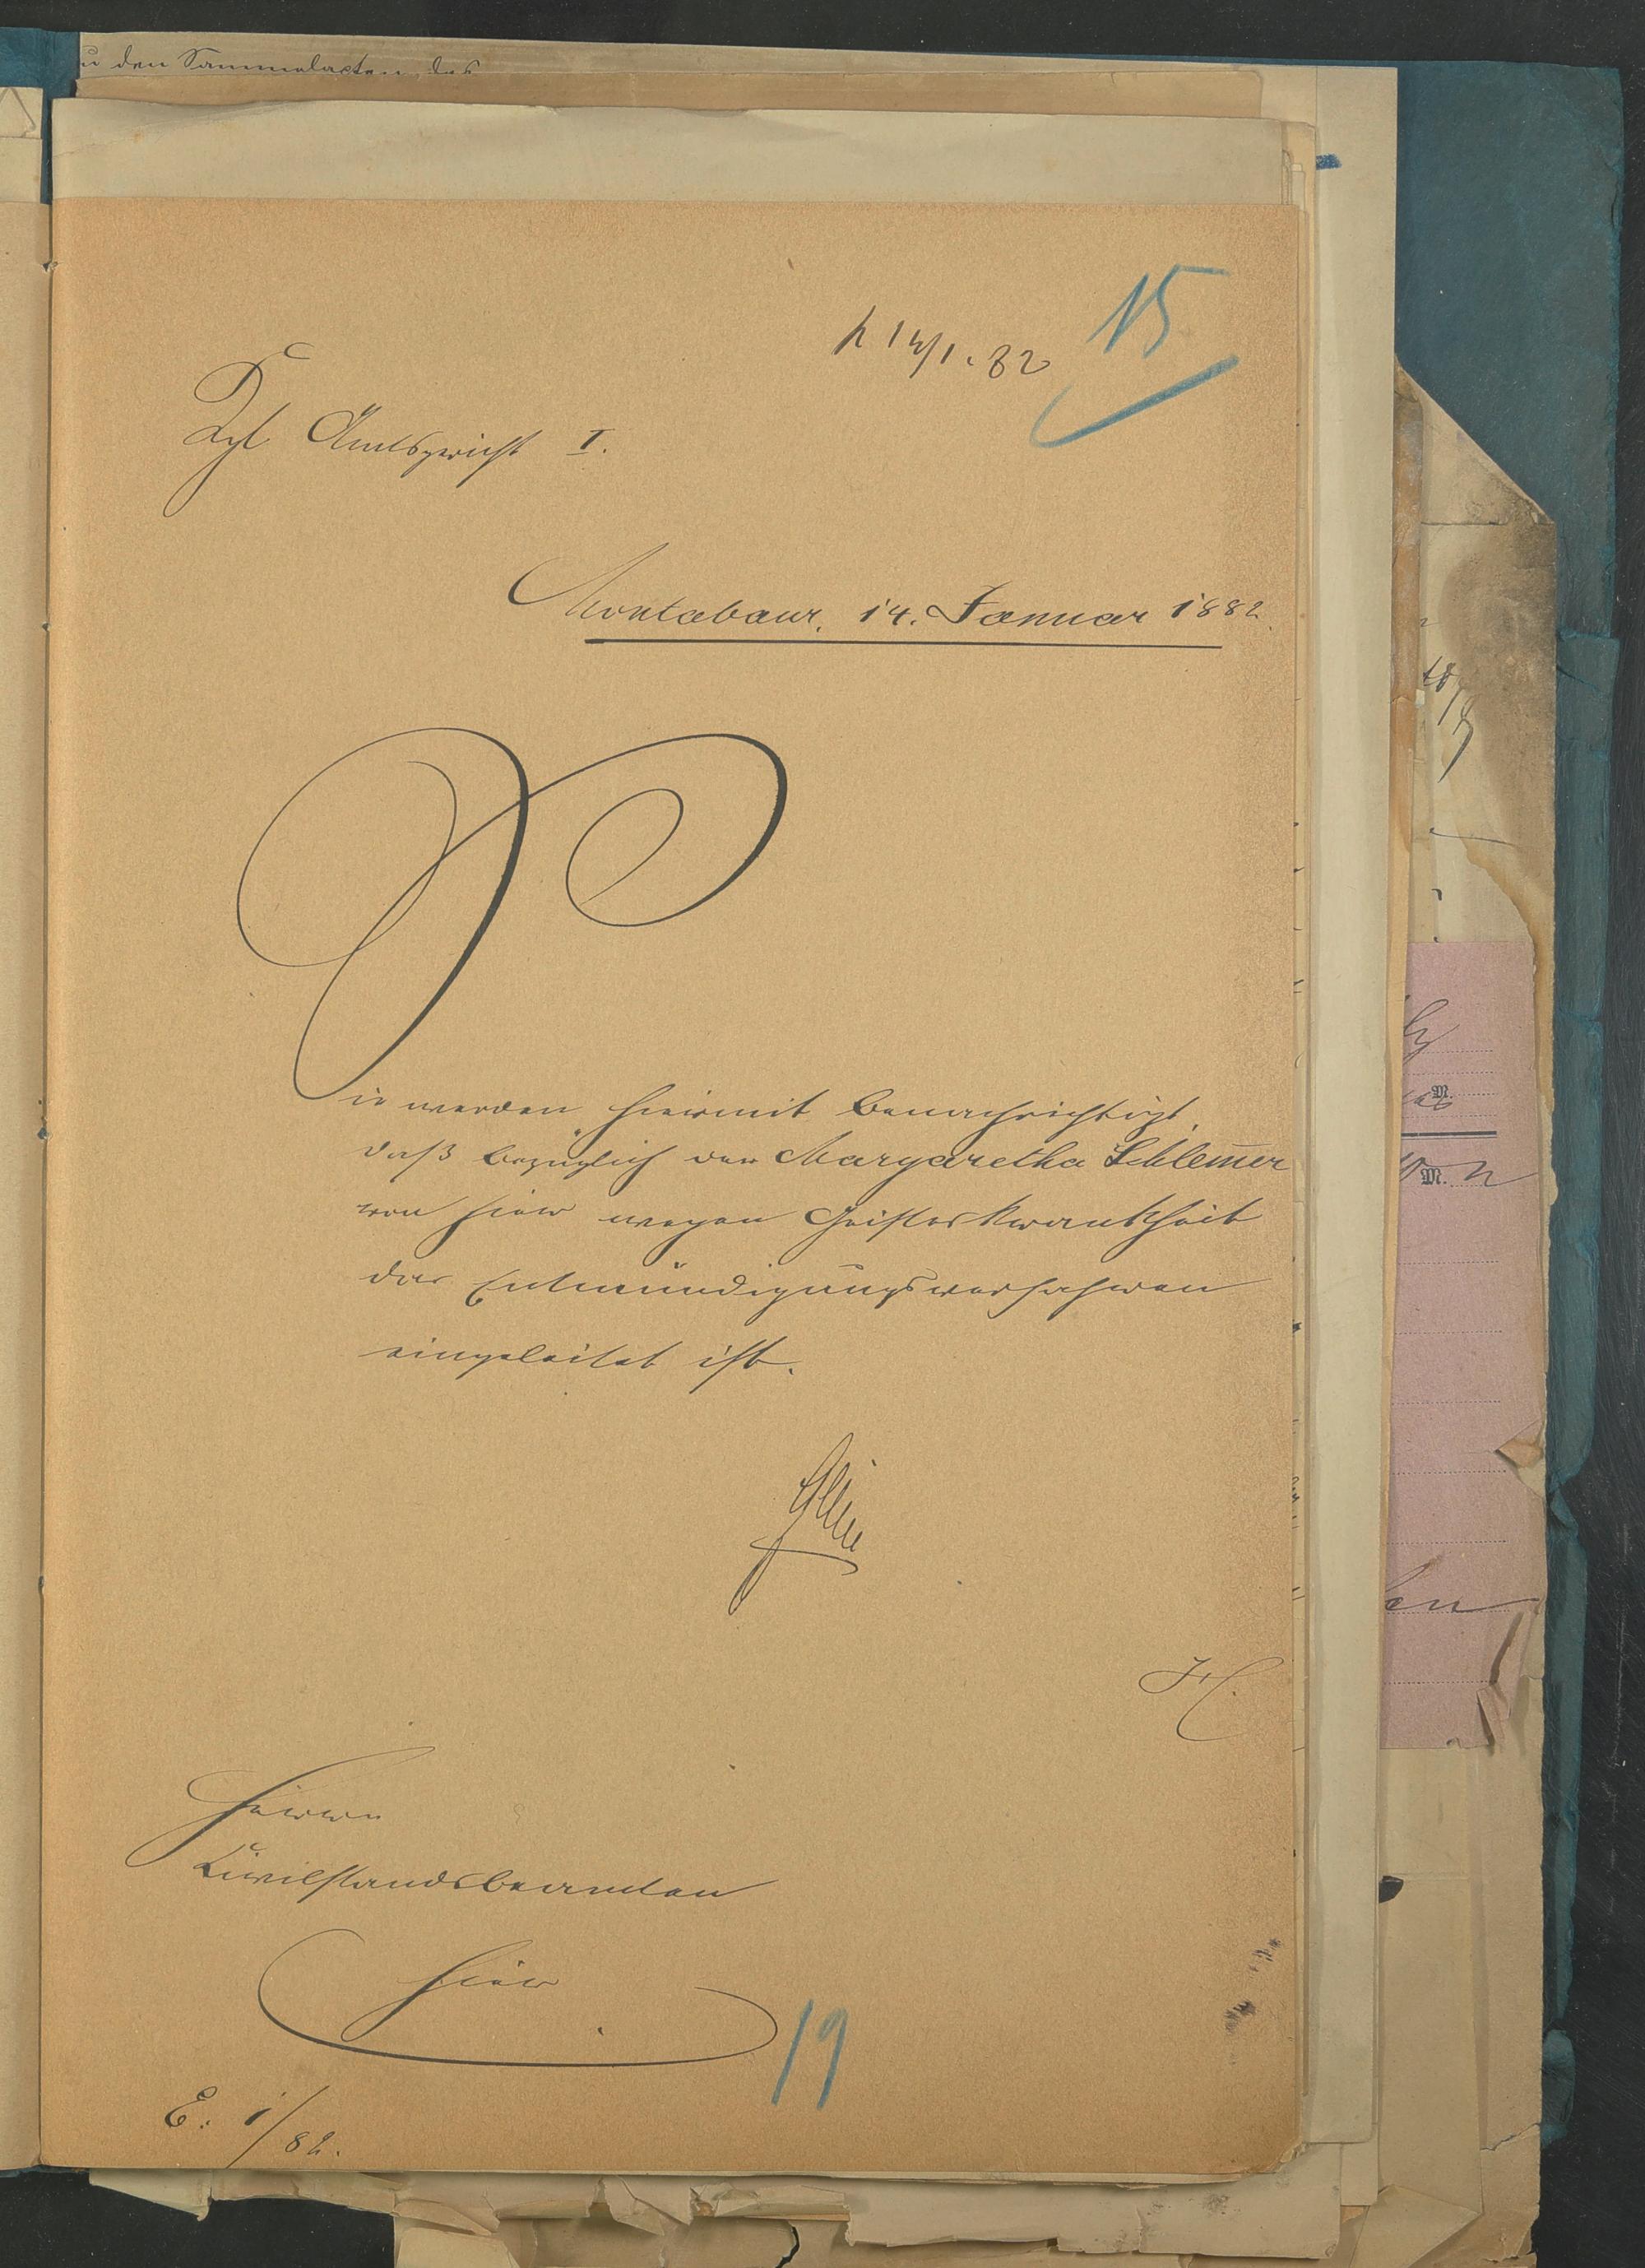 u den Sammelacten des
15
14/1. 82
Kgl Amtsgericht I.
Montabaur, 14. Januar 1882.
Sie werden hiermit benachrichtigt,
daß bezüglich der Margaretha Schlem̅er
von hier wegen Geisteskrankheit
das Entmündigungsverfahren
eingeleitet ist.
H.
Herrn
Civilstandsbeamten
hier
19
E. 1/82.